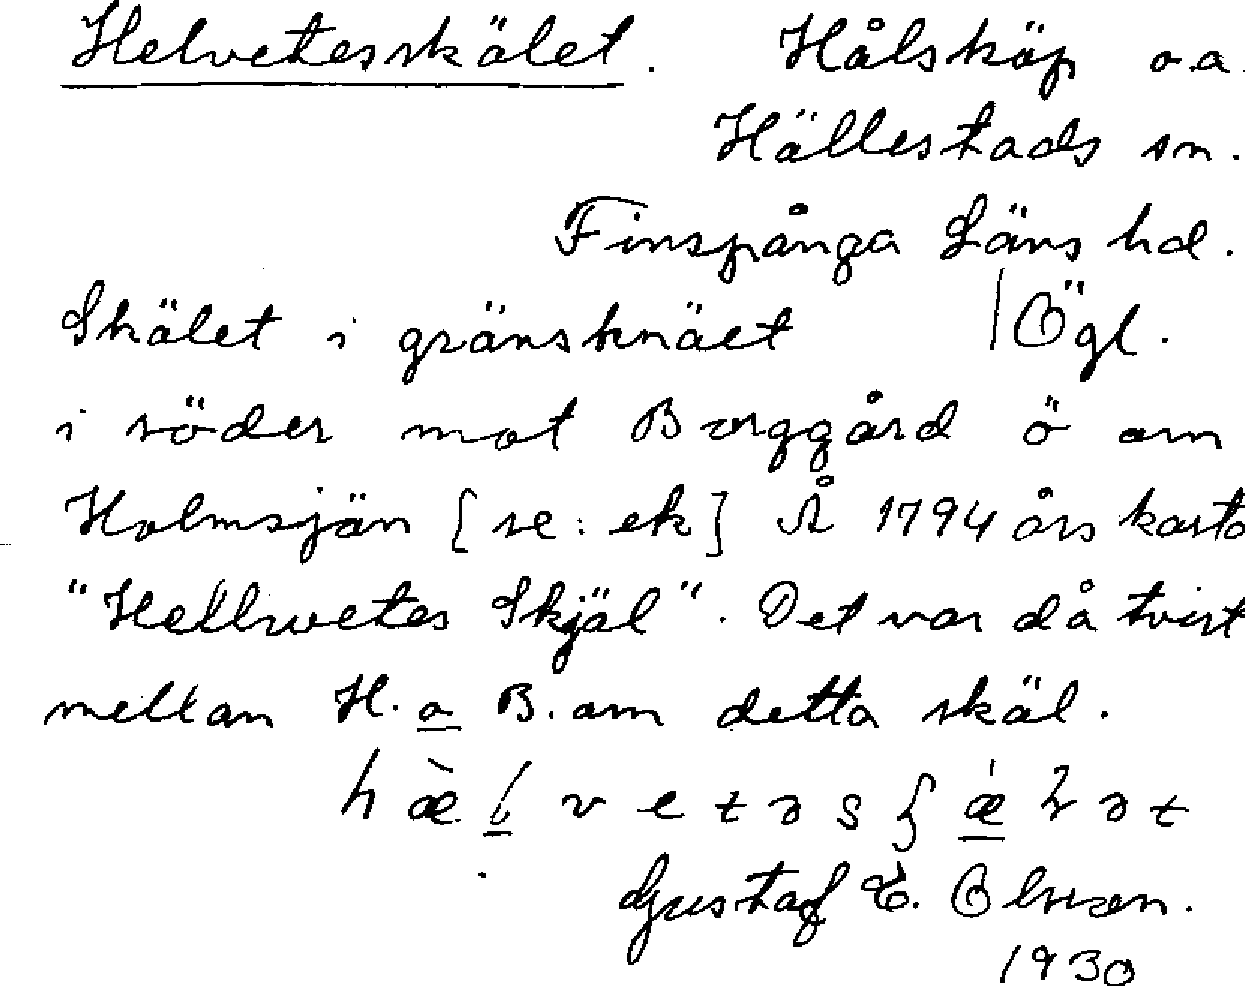 Helvetesskälet. Hålsköp o.a.
Hällestads sn.
Finspånga Läns hd.
Skälet i gränsknäet /Ögl.
i söder mot Borggård ö om
Holmsjön [se: ek] Å 1794 års karta
"Hellwetes Skjäl". Det var då tvist
mellan H. o B. om detta skäl.
Gustaf E. Olsson.
1930